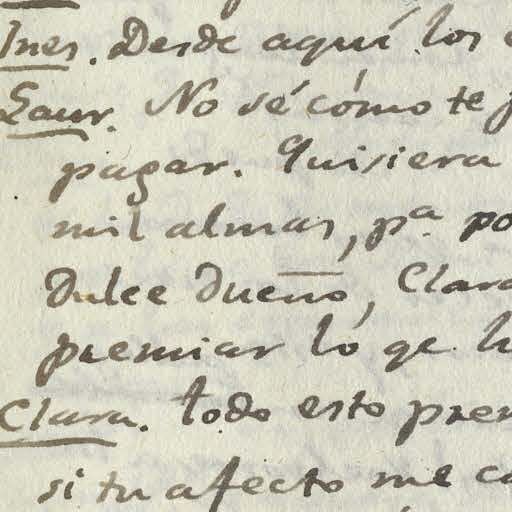 Ines. Desde aquí los
Laur. No sé cómo te
pagar. Quisiera
mil almas, pa. po
Dulce Dueño, Clara
premiar lo qe. h
Clara. todo esto prem
si tu afecto me co